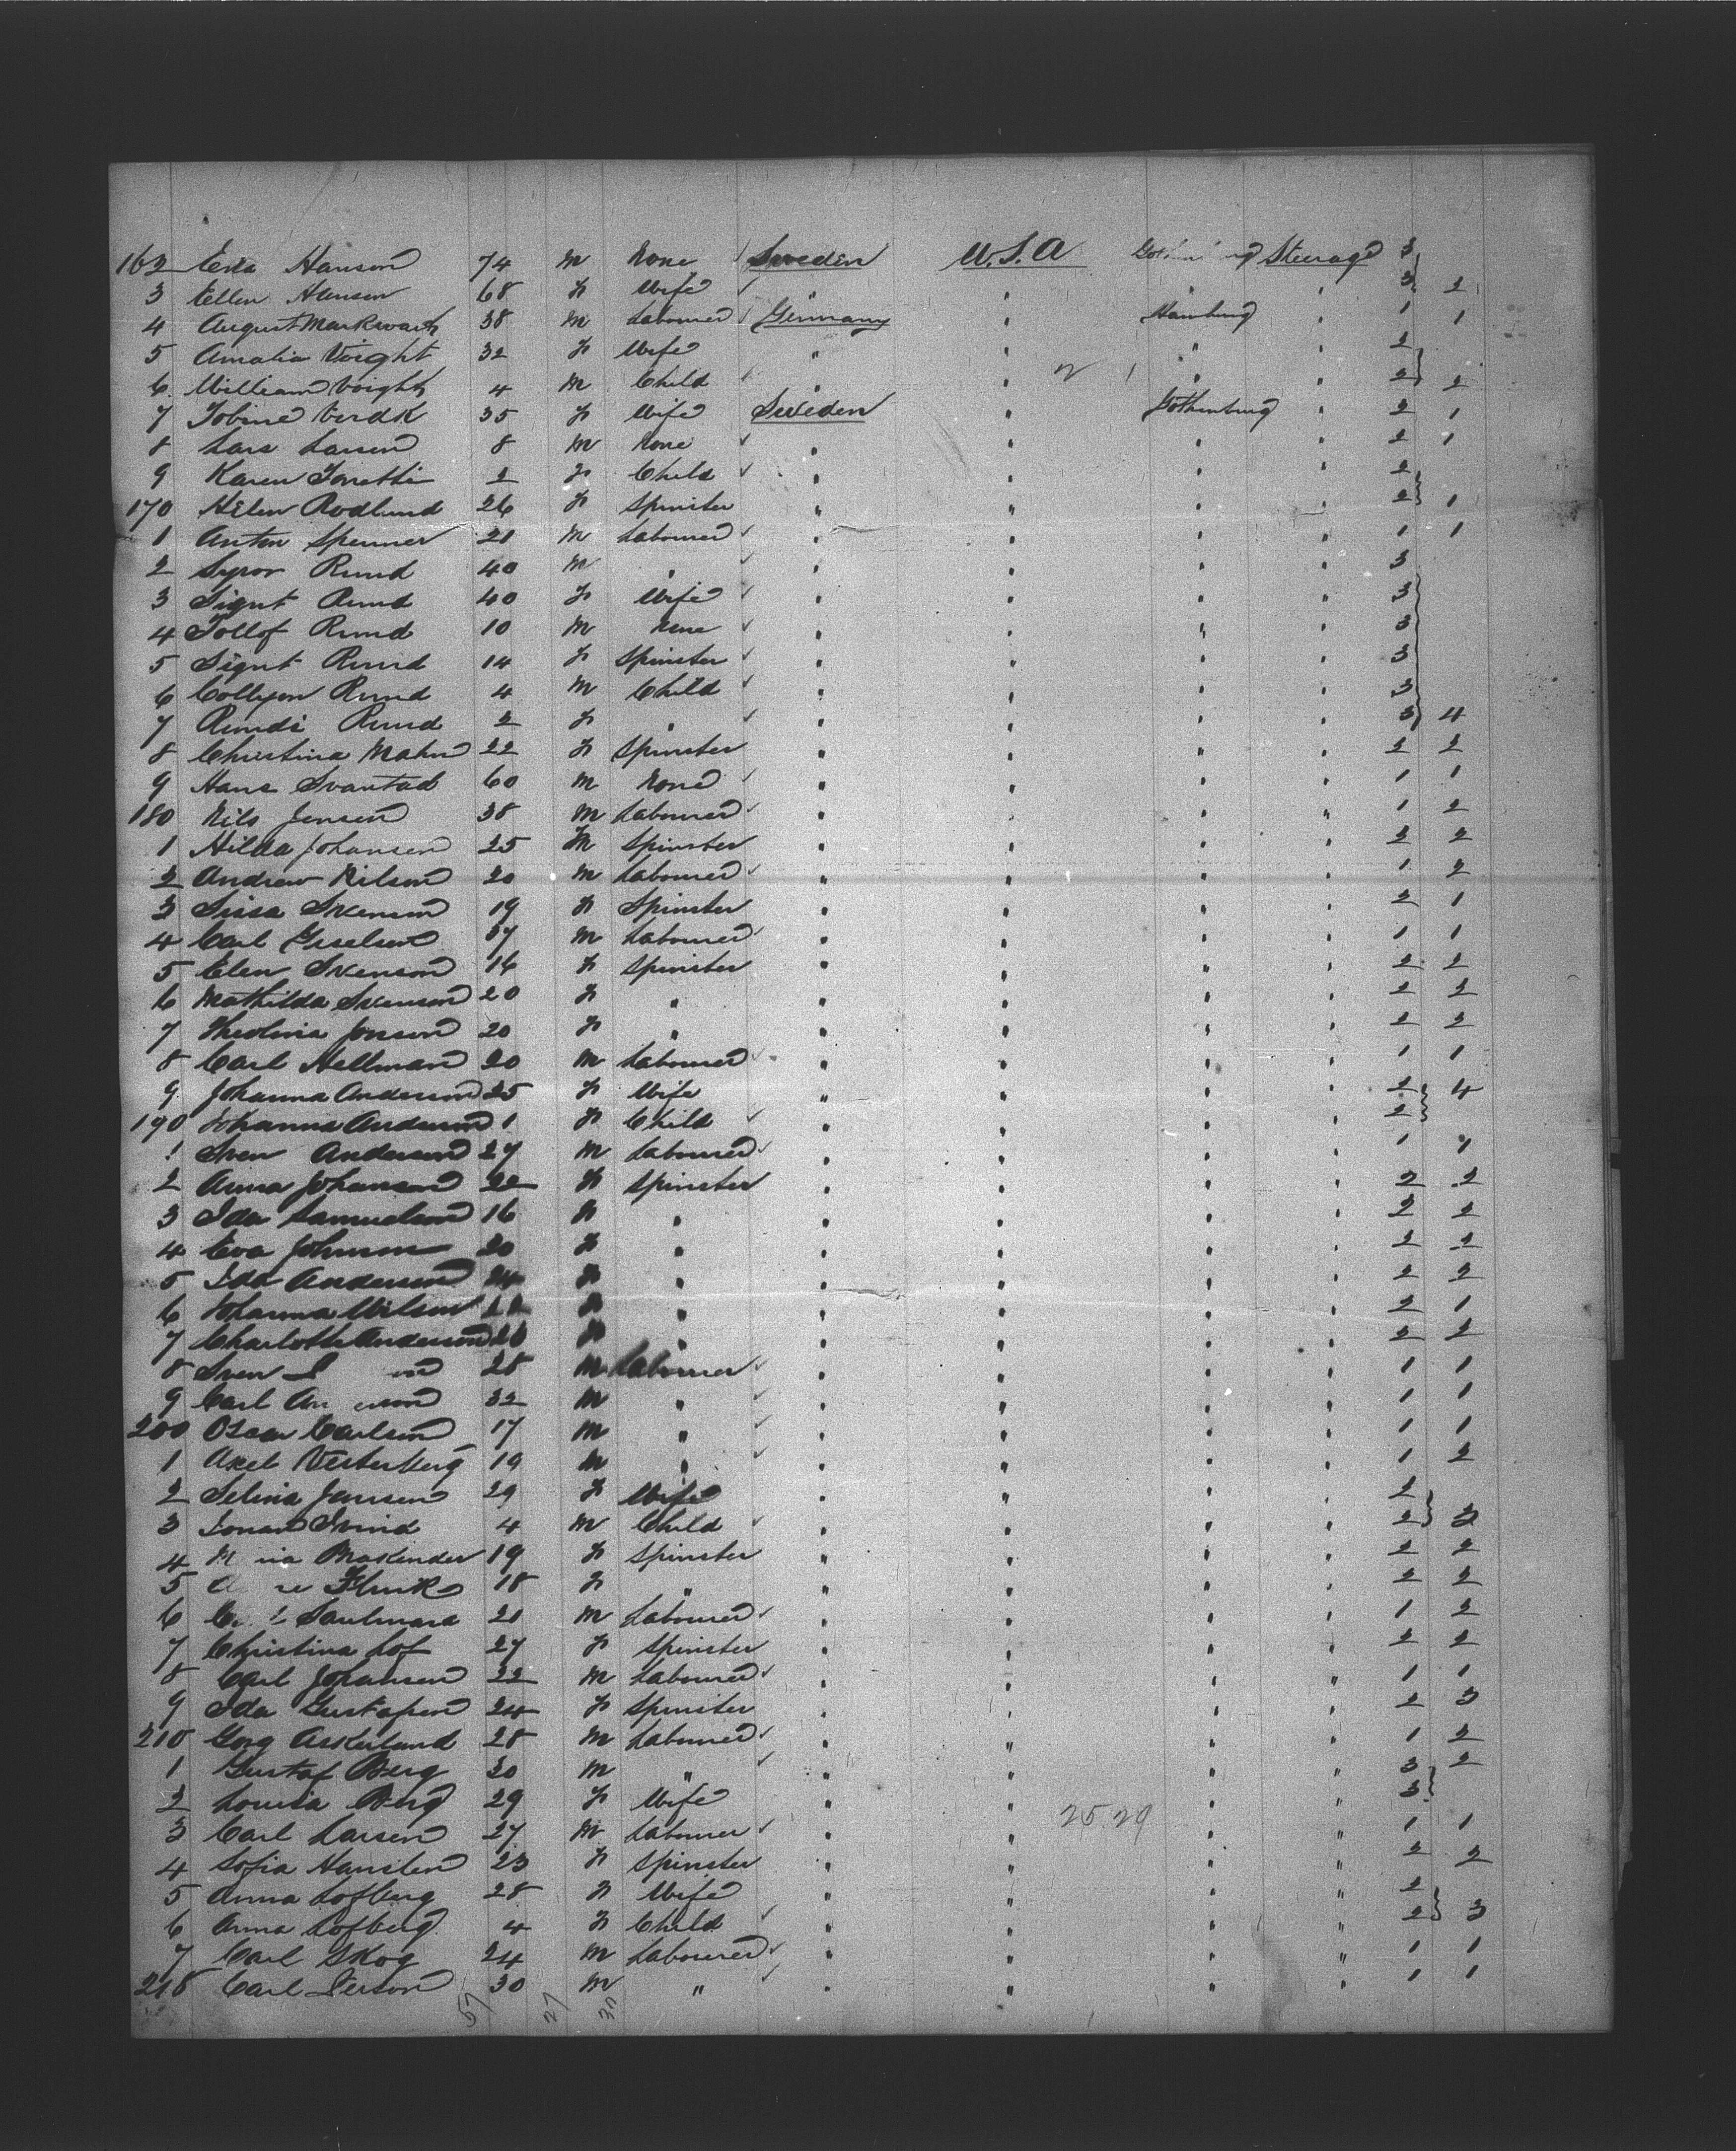 162 Erka Hanson 74 M None Sweden U.S.A Steerage 3
3 Ellen Hanson 68 F Wife " " " 3 2
4 August Markwarth 38 M Labourer Germany " Hamburg " 1 1
5 Amalia Voight 32 F Wife " " " " 2
6 William Voight 4 M Child " " " " 2 2
7 Tobine 35 F Wife Sweden " Gothenburg " 2 1
8 Lars Larsen 8 M None " " " " 2 1
9 Karen 2 F Child " " " " 2
170 Helen Rodlund 26 F Spinster " " " " 2 1
1 Anton Spenner 21 M Labourer " " " " 1 1
2 Rund 40 M " " " " " 3
3 Signt Rund 40 F Wife " " " " 3
4 Tollof Rund 10 M None " " " " 3
5 Signt Rund 14 F Spinster " " " " 3
6 Rund 4 M Child " " " " 3
7 Rundi Rund 2 F " " " " " 3 4
8 Christina Mahn 22 F Spinster " " " " 2 2
9 Hans Svantad 60 M None " " " " 1 1
180 Nils Jensen 38 M Labourer " " " " 1 2
1 Hilda Johansen 25 F Spinster " " " " 2 2
2 Andrew Nilson 20 M Labourer " " " " 1 2
3 Sissa Svenson 19 F Spinster " " " " 2 1
4 Carl M Labourer " " " " 1 1
5 Elen Svenson 16 F Spinster " " " " 2 2
6 Mathilda Svenson 20 F " " " " " 2 2
7 Theolina Jonson 20 F " " " " " 2 2
8 Carl Hellman 20 M Labourer " " " " 1 1
9 Johanna Anderson 25 F Wife " " " " 2 4
190 Johanna Anderson 1 F Child " " " " 2
1 Sven Anderson 27 M Labourer " " " " 1 1
2 Anna Johanson 22 F Spinster " " " " 2 2
3 Ida Samuelson 16 F " " " " " 2 2
4 Eva Johnson 20 F " " " " " 2 2
5 Ida Anderson 24 F " " " " " 2 2
6 Johanna Nilson 22 F " " " " " 2 1
7 Charlotte Anderson F " " " " " 2 2
8 Sven 28 M Labourer " " " " 1 1
9 Carl 32 M " " " " " 1 1
200 Oscar Carlson 17 M " " " " " 1 1
1 Axel Westerberg 19 M " " " " " 1 2
2 Selina Jansen 29 F Wife " " " " 2
3 4 M Child " " " " 2 3
4 19 F Spinster " " " " 2 2
5 18 F " " " " " 2 2
6 21 M Labourer " " " " 1 2
7 Christina Lof 27 F Spinster " " " " 2 2
8 Carl Johansen 22 M Labourer " " " " 1 1
9 Ida Gustafsen 24 F Spinster " " " " 2 3
210 Georg Askerlund 28 M Labourer " " " " 1 2
1 Gustaf Berg 30 M " " " " " 3 2
2 Lovisa Berg 29 F Wife " " " " 3
25.29
3 Carl Larsen 27 M Labourer " " " " 1 1
4 Sofia Hansten 23 F Spinster " " " " 2 2
5 Anna Lofberg 28 F Wife " " " " 2
6 Anna Lofberg 4 F Child " " " " 2 3
7 Carl Skog 24 M Labourer " " " " 1 1
218 Carl Person 30 M " " " " " 1 1
57 27 30